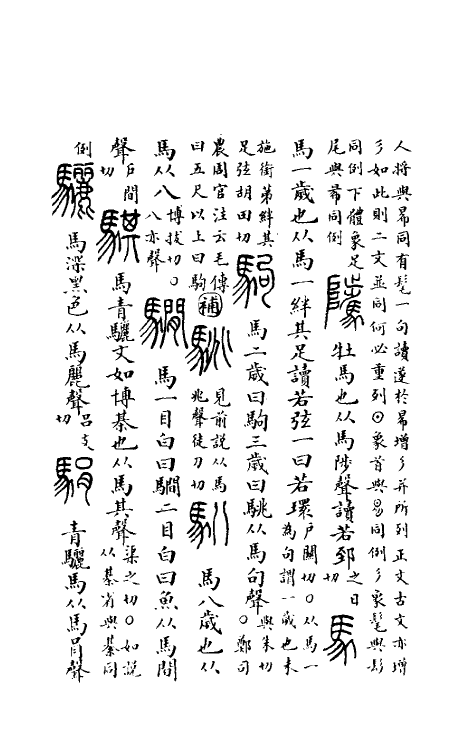 人將與昜同有髦一句讀遂於昜增彡并所列正文古文亦增
彡如此則二文並同何必重列⊙象首與昜同例彡象髦與髟
同例下體象足
尾與㣇同例
騭 牡馬也从馬陟聲讀若郅之日切 馬
馬一歲也从馬一絆其足讀若弦一曰若環戶關切〇从馬一
為句謂一歲也未
施銜第絆其
足弦胡田切
駒 馬二歲曰駒三歲曰駣从馬句聲舉朱切
〇鄭司
農周官注云毛傳
曰五尺以上曰駒
補 駣 見前說从馬
兆聲徒刀切
馬八 馬八歲也从
馬从八博拔切〇
八亦聲
騆 馬一目白曰騆二目白曰魚从馬閒
聲戶閒切 騏 馬青驪文如博棊也从馬其聲渠之切〇如說
从綦省與綦同
例 驪 馬深黑色从馬麗聲呂支切 駽 青驪馬从馬肙聲